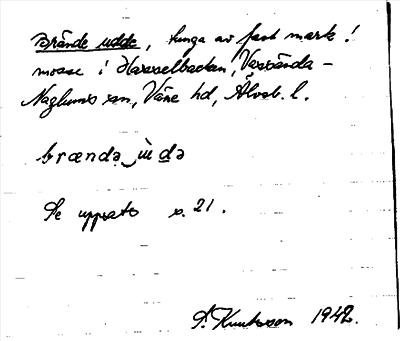 Brände udde, tunga av fast mark i
mosse i Hasselbackan, Vassända -
Naglums sn, Väne hd, Älvsb. l.
brændə ùdə
Se uppsats s. 21.
Knutsson 1942.